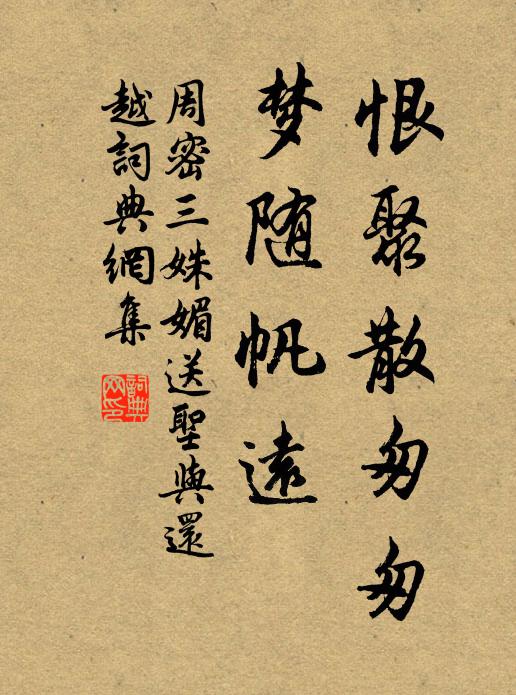 恨聚散匆匆
梦随帆远
周密三姝媚送聖與還
越詞典網集
詞典
网印